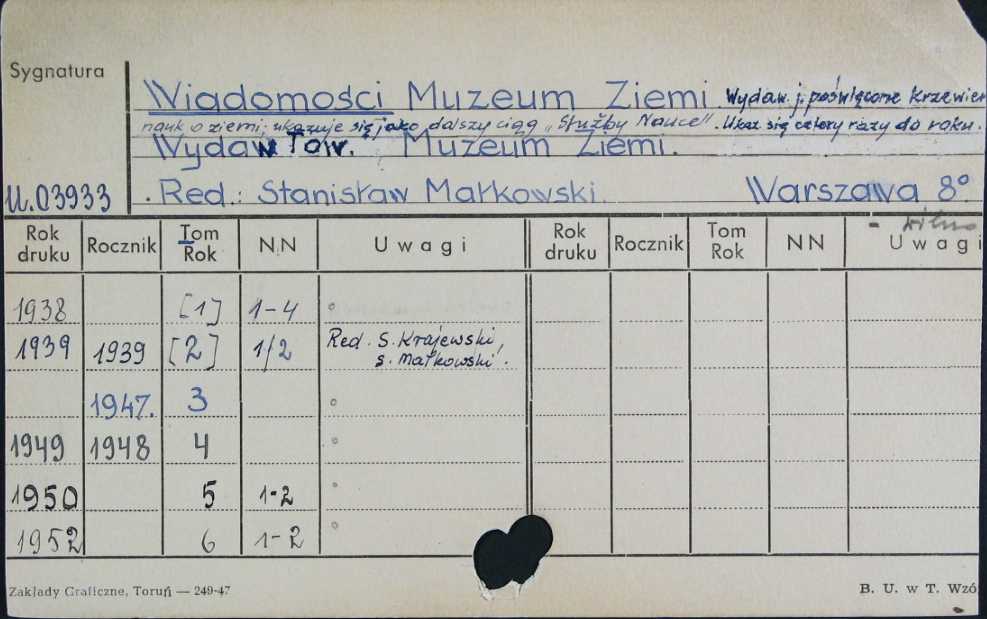 Sygnatura
Wiadomości Muzeum Ziemi. Wydaw. j. poświęcone krzewien
nauk o ziemi; ukazuje się jako dalszy ciąg „Służby Nauce". Ukaz. się cztery razy do roku.
Wydaw Tow. Muzeum Ziemi.
U.03933 . Red.: Stanisław Małkowski. Warszawa 8°
- Wilno
Rok druku Rocznik Tom Rok NN Uwagi Rok druku Rocznik Tom Rok NN Uwagi
1938 [1] 1-4 "
1939 1939 [2] 1/2 Red. S. Krajewski, S. Małkowski.
1947. 3 "
1949 1948 4 "
1950 5 1-2 "
1952 6 1-2 "
Zakłady Graficzne, Toruń — 249-47 B. U. w T. Wzó